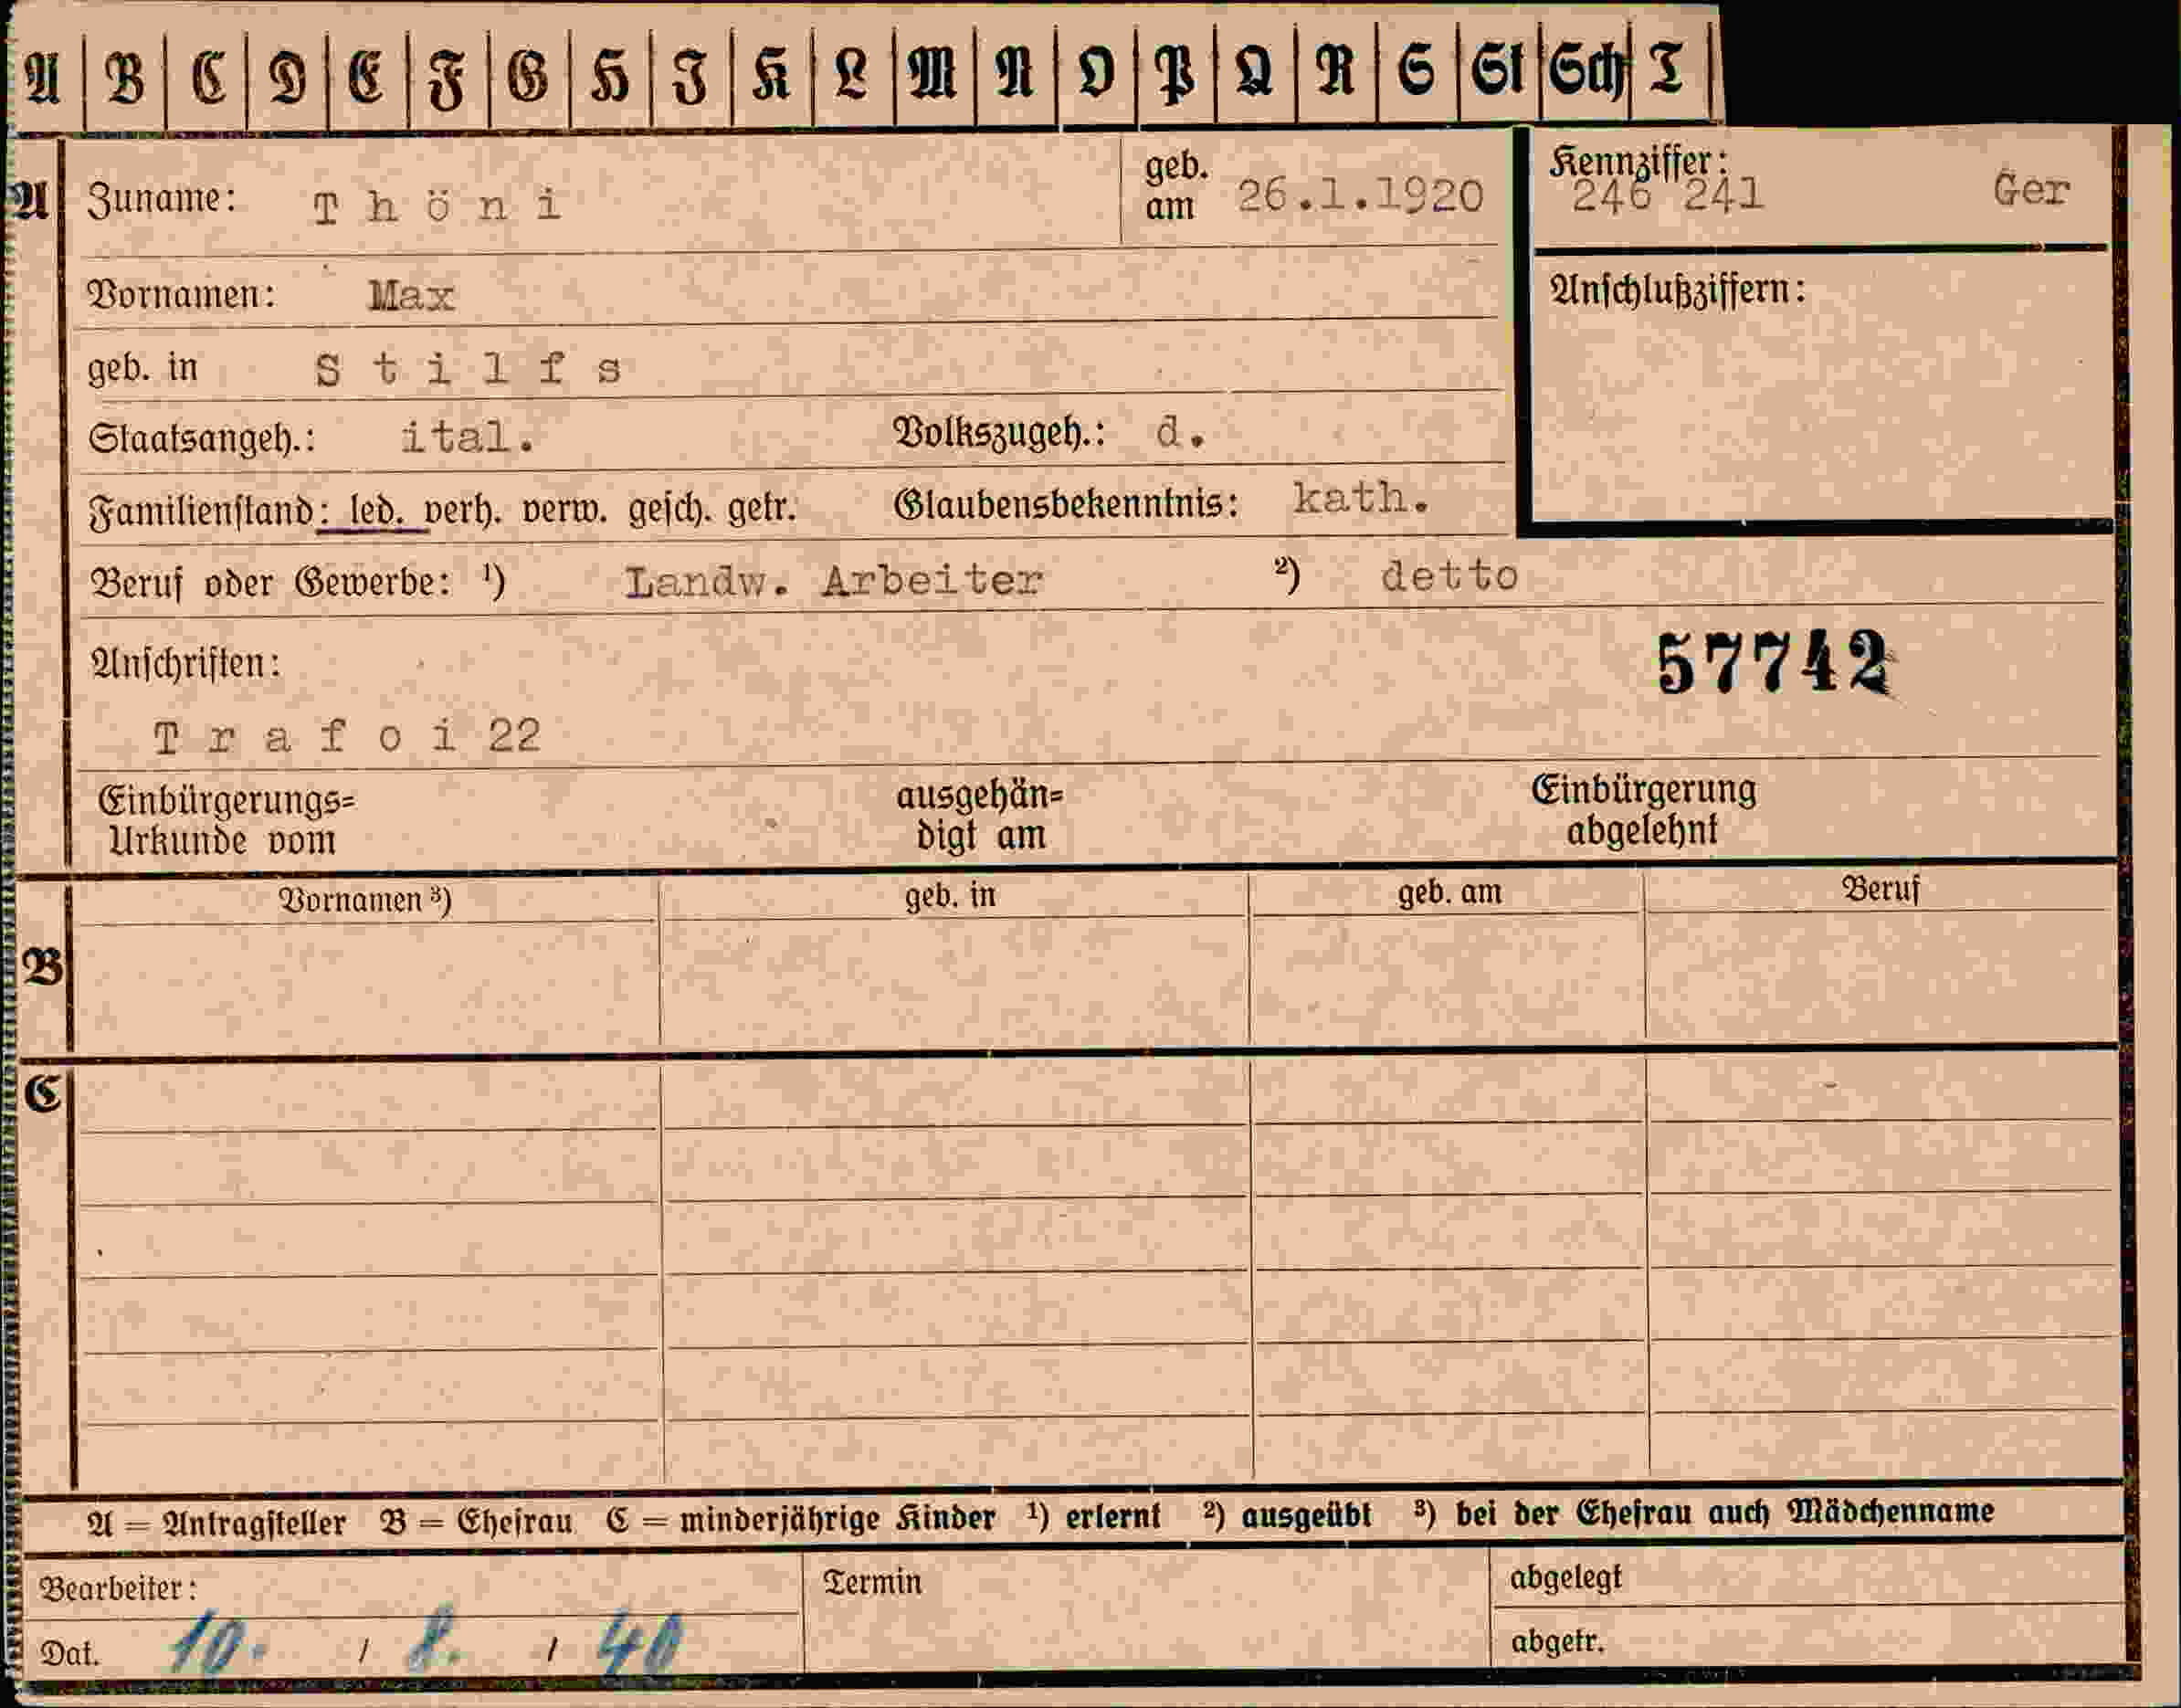 A B C D E F G H I K L M N O P Q R S St Sch T
A Zuname: Thöni geb. am 26.1.1920 Kennziffer: 246 241 Ger
Vornamen: Max Anschlußziffern:
geb. in Stilfs
Staatsangeh.: ital. Volkszugeh.: d.
Familienstand: led. verh. verw. gesch. getr. Glaubensbekenntnis: kath.
Beruf oder Gewerbe: ¹) Landw. Arbeiter ²) detto
Anschriften: 57742
Trafoi 22
Einbürgerungs= ausgehän= Einbürgerung
Urkunde vom digt am abgelehnt
Vornamen ³) geb. in geb. am Beruf
B
C
A = Antragsteller B = Ehefrau C = minderjährige Kinder ¹) erlernt ²) ausgeübt ³) bei der Ehefrau auch Mädchenname
Bearbeiter: Termin abgelegt
Dat. 10. / 8. / 40 abgetr.